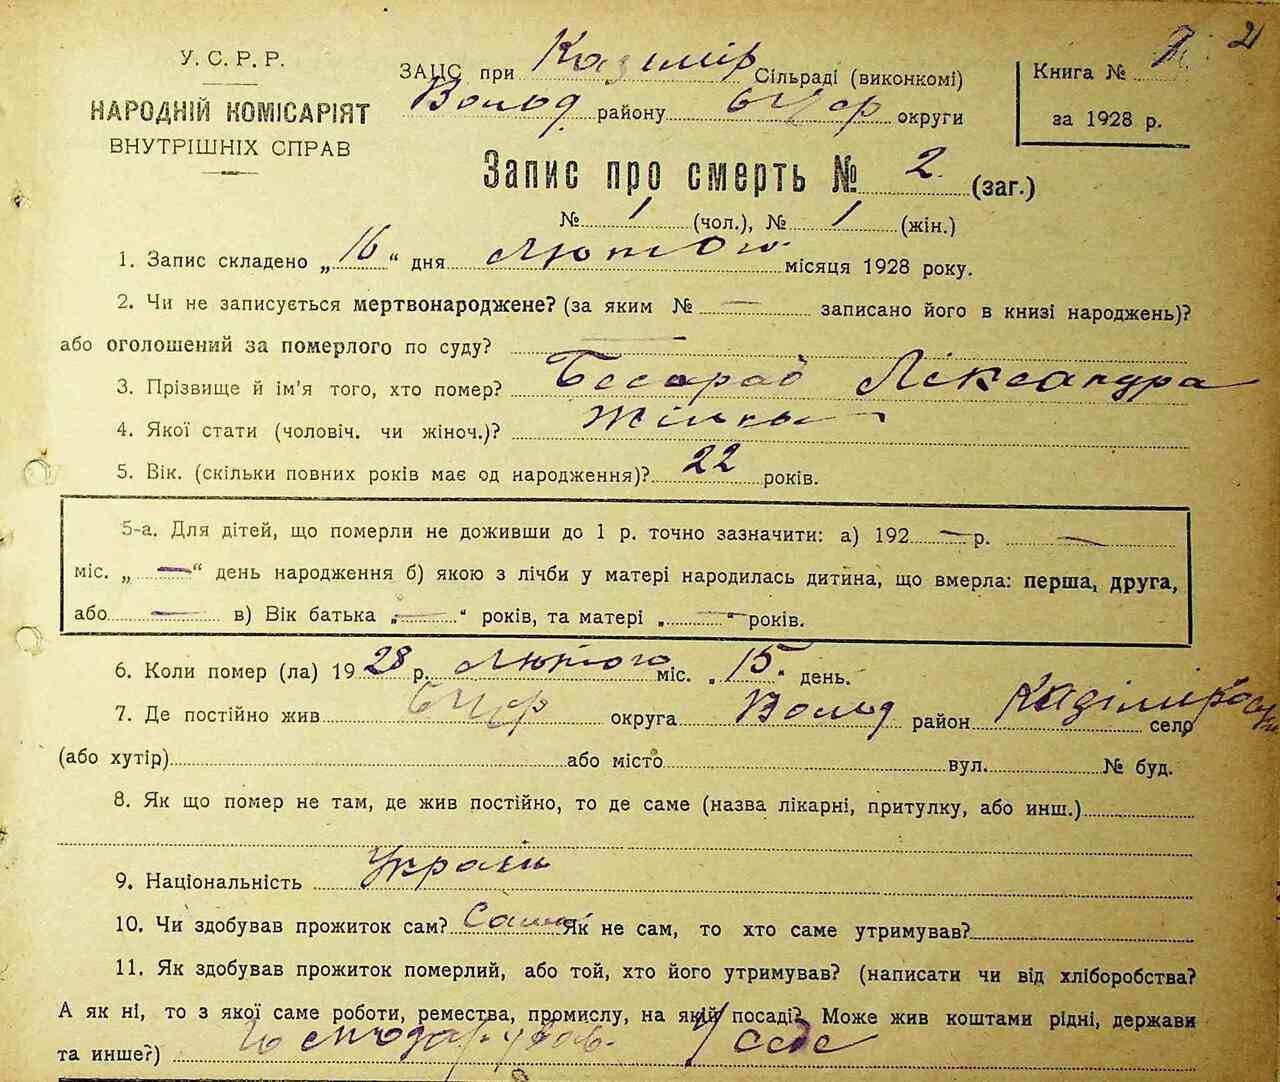 У. С. Р. Р.
НАРОДНІЙ КОМІСАРІЯТ
ВНУТРІШНІХ СПРАВ
ЗАЦС при Казімір Сільраді (виконкомі)
Волод району округи
Книга №
за 1928 р.
2
Запис про смерть № 2 (заг.)
№ 1 (чол.), № 1 (жін.)
1. Запис складено „16“ дня Лютого місяця 1928 року.
2. Чи не записується мертвонароджене? (за яким № — записано його в книзі народжень)?
або оголошений за померлого по суду? —
3. Прізвище й ім'я того, хто помер? Бесараб Александра
4. Якої стати (чоловіч. чи жіноч.)?
5. Вік. (скільки повних років має од народження)? 22 років.
5-а. Для дітей, що померли не доживши до 1 р. точно зазначити: а) 192 — р. —
міс. „ — “ день народження б) якою з лічби у матері народилась дитина, що вмерла: перша, друга,
або — в) Вік батька „ — “ років, та матері „ — “ років.
6. Коли помер (ла) 1928 р. Лютого міс. „15“ день.
7. Де постійно жив округа Волод район село
(або хутір) або місто вул. № буд.
8. Як що помер не там, де жив постійно, то де саме (назва лікарні, притулку, або инш.)
9. Національність Україн
10. Чи здобував прожиток сам? Сама Як не сам, то хто саме утримував?
11. Як здобував прожиток померлий, або той, хто його утримував? (написати чи від хліборобства?
А як ні, то з якої саме роботи, ремества, промислу, на якій посаді? Може жив коштами рідні, держави
та инше?) у себе